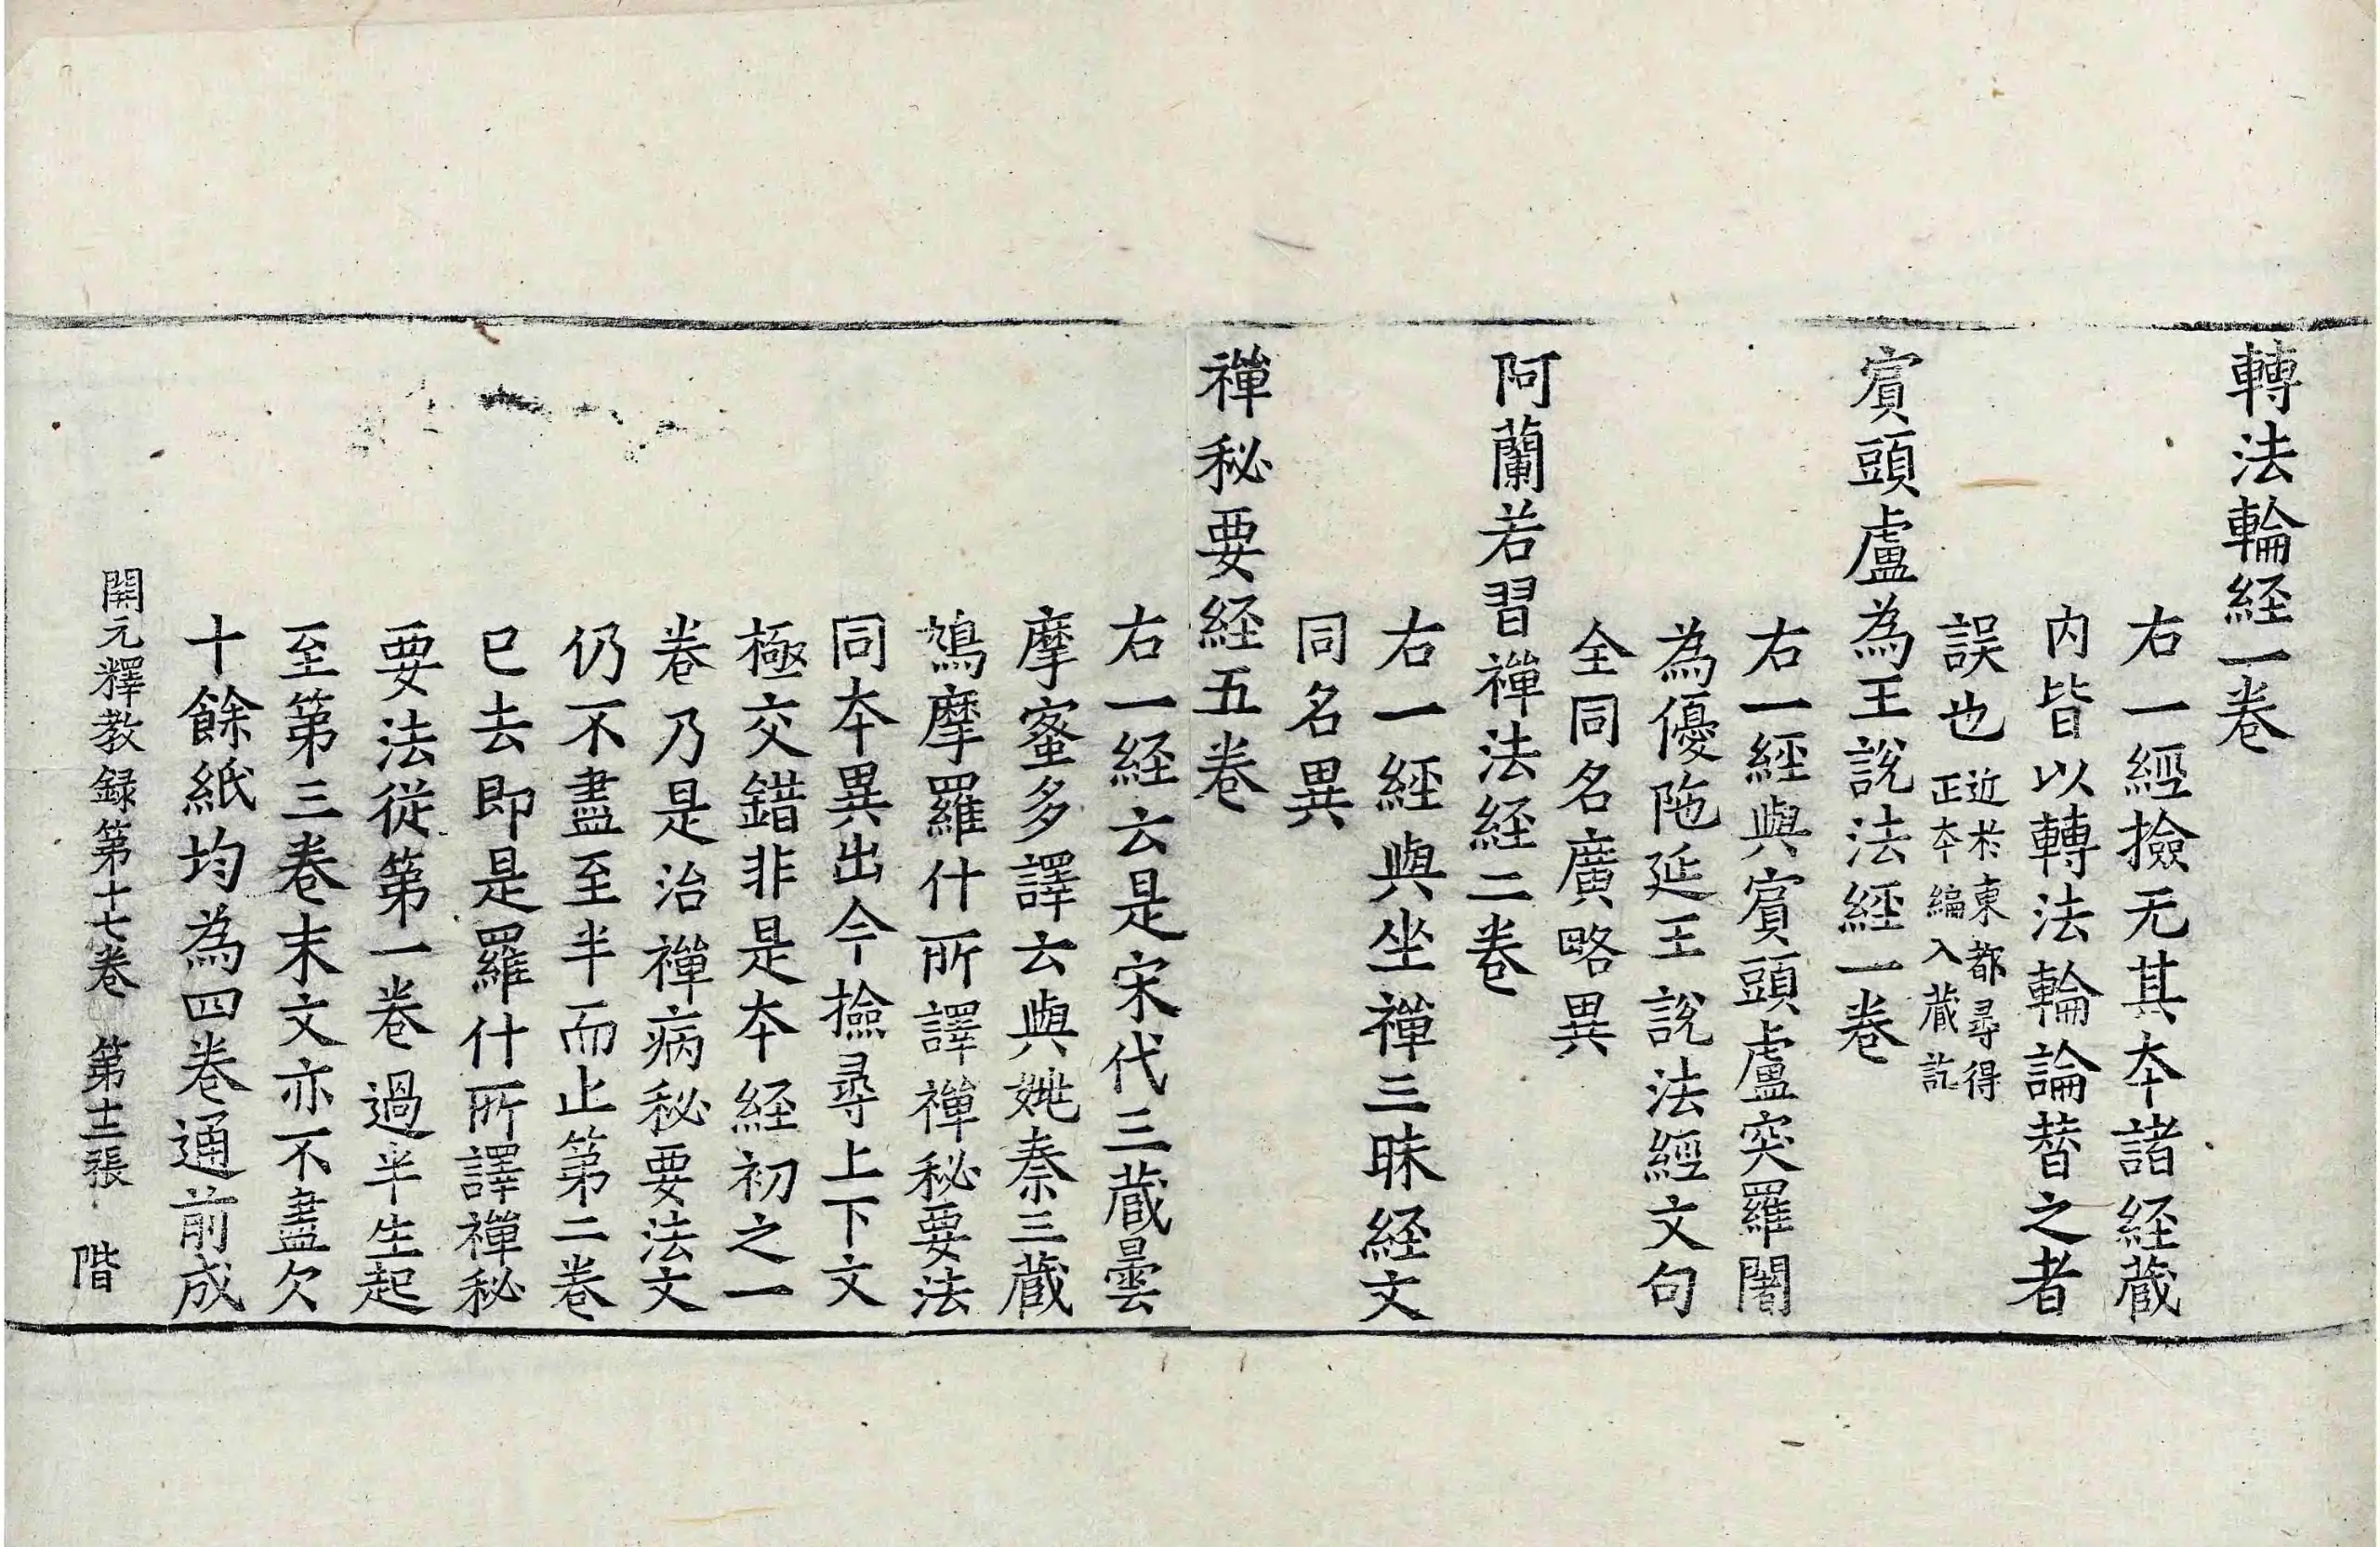 轉法輪経一卷
右一經撿无其夲諸経蔵
内皆以轉法輪論替之者
誤也近於東都尋得正夲編入蔵訖
賔頭盧為王說法經一卷
右一經與賔頭盧突羅闍
為優陁延王說法經文句
全同名廣略異
阿蘭若習禪法経二卷
右一經與坐禪三昧経文
同名異
禪秘要経五卷
右一経云是宋代三蔵曇
摩蜜多譯云與姚秦三蔵
鳩摩羅什所譯禪秘要法
同夲異出今撿尋上下文
極交錯非是夲経初之一
卷乃是治禪病秘要法文
仍不盡至半而止第二卷
巳去即是羅什所譯禪秘
要法従第一卷過半生起
至第三卷末文亦不盡欠
十餘紙均為四卷通前成
開元釋教録第十七卷 第十二張 階